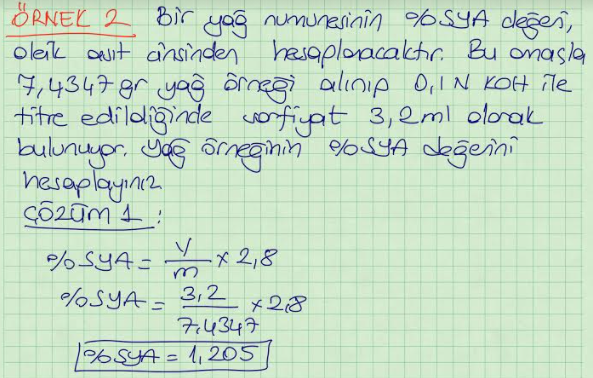 ÖRNEK 2 Bir yağ numunesinin %SYA değeri,
oleik asit cinsinden hesaplanacaktır. Bu amaçla
7,4347 gr yağ örneği alınıp 0,1 N KOH ile
titre edildiğinde sarfiyat 3,2 ml olarak
bulunuyor. Yağ örneğinin %SYA değerini
hesaplayınız
ÇÖZÜM 1 :
%SYA = V/m × 2,8
%SYA = 3,2/7,4347 × 2,8
%SYA = 1,205